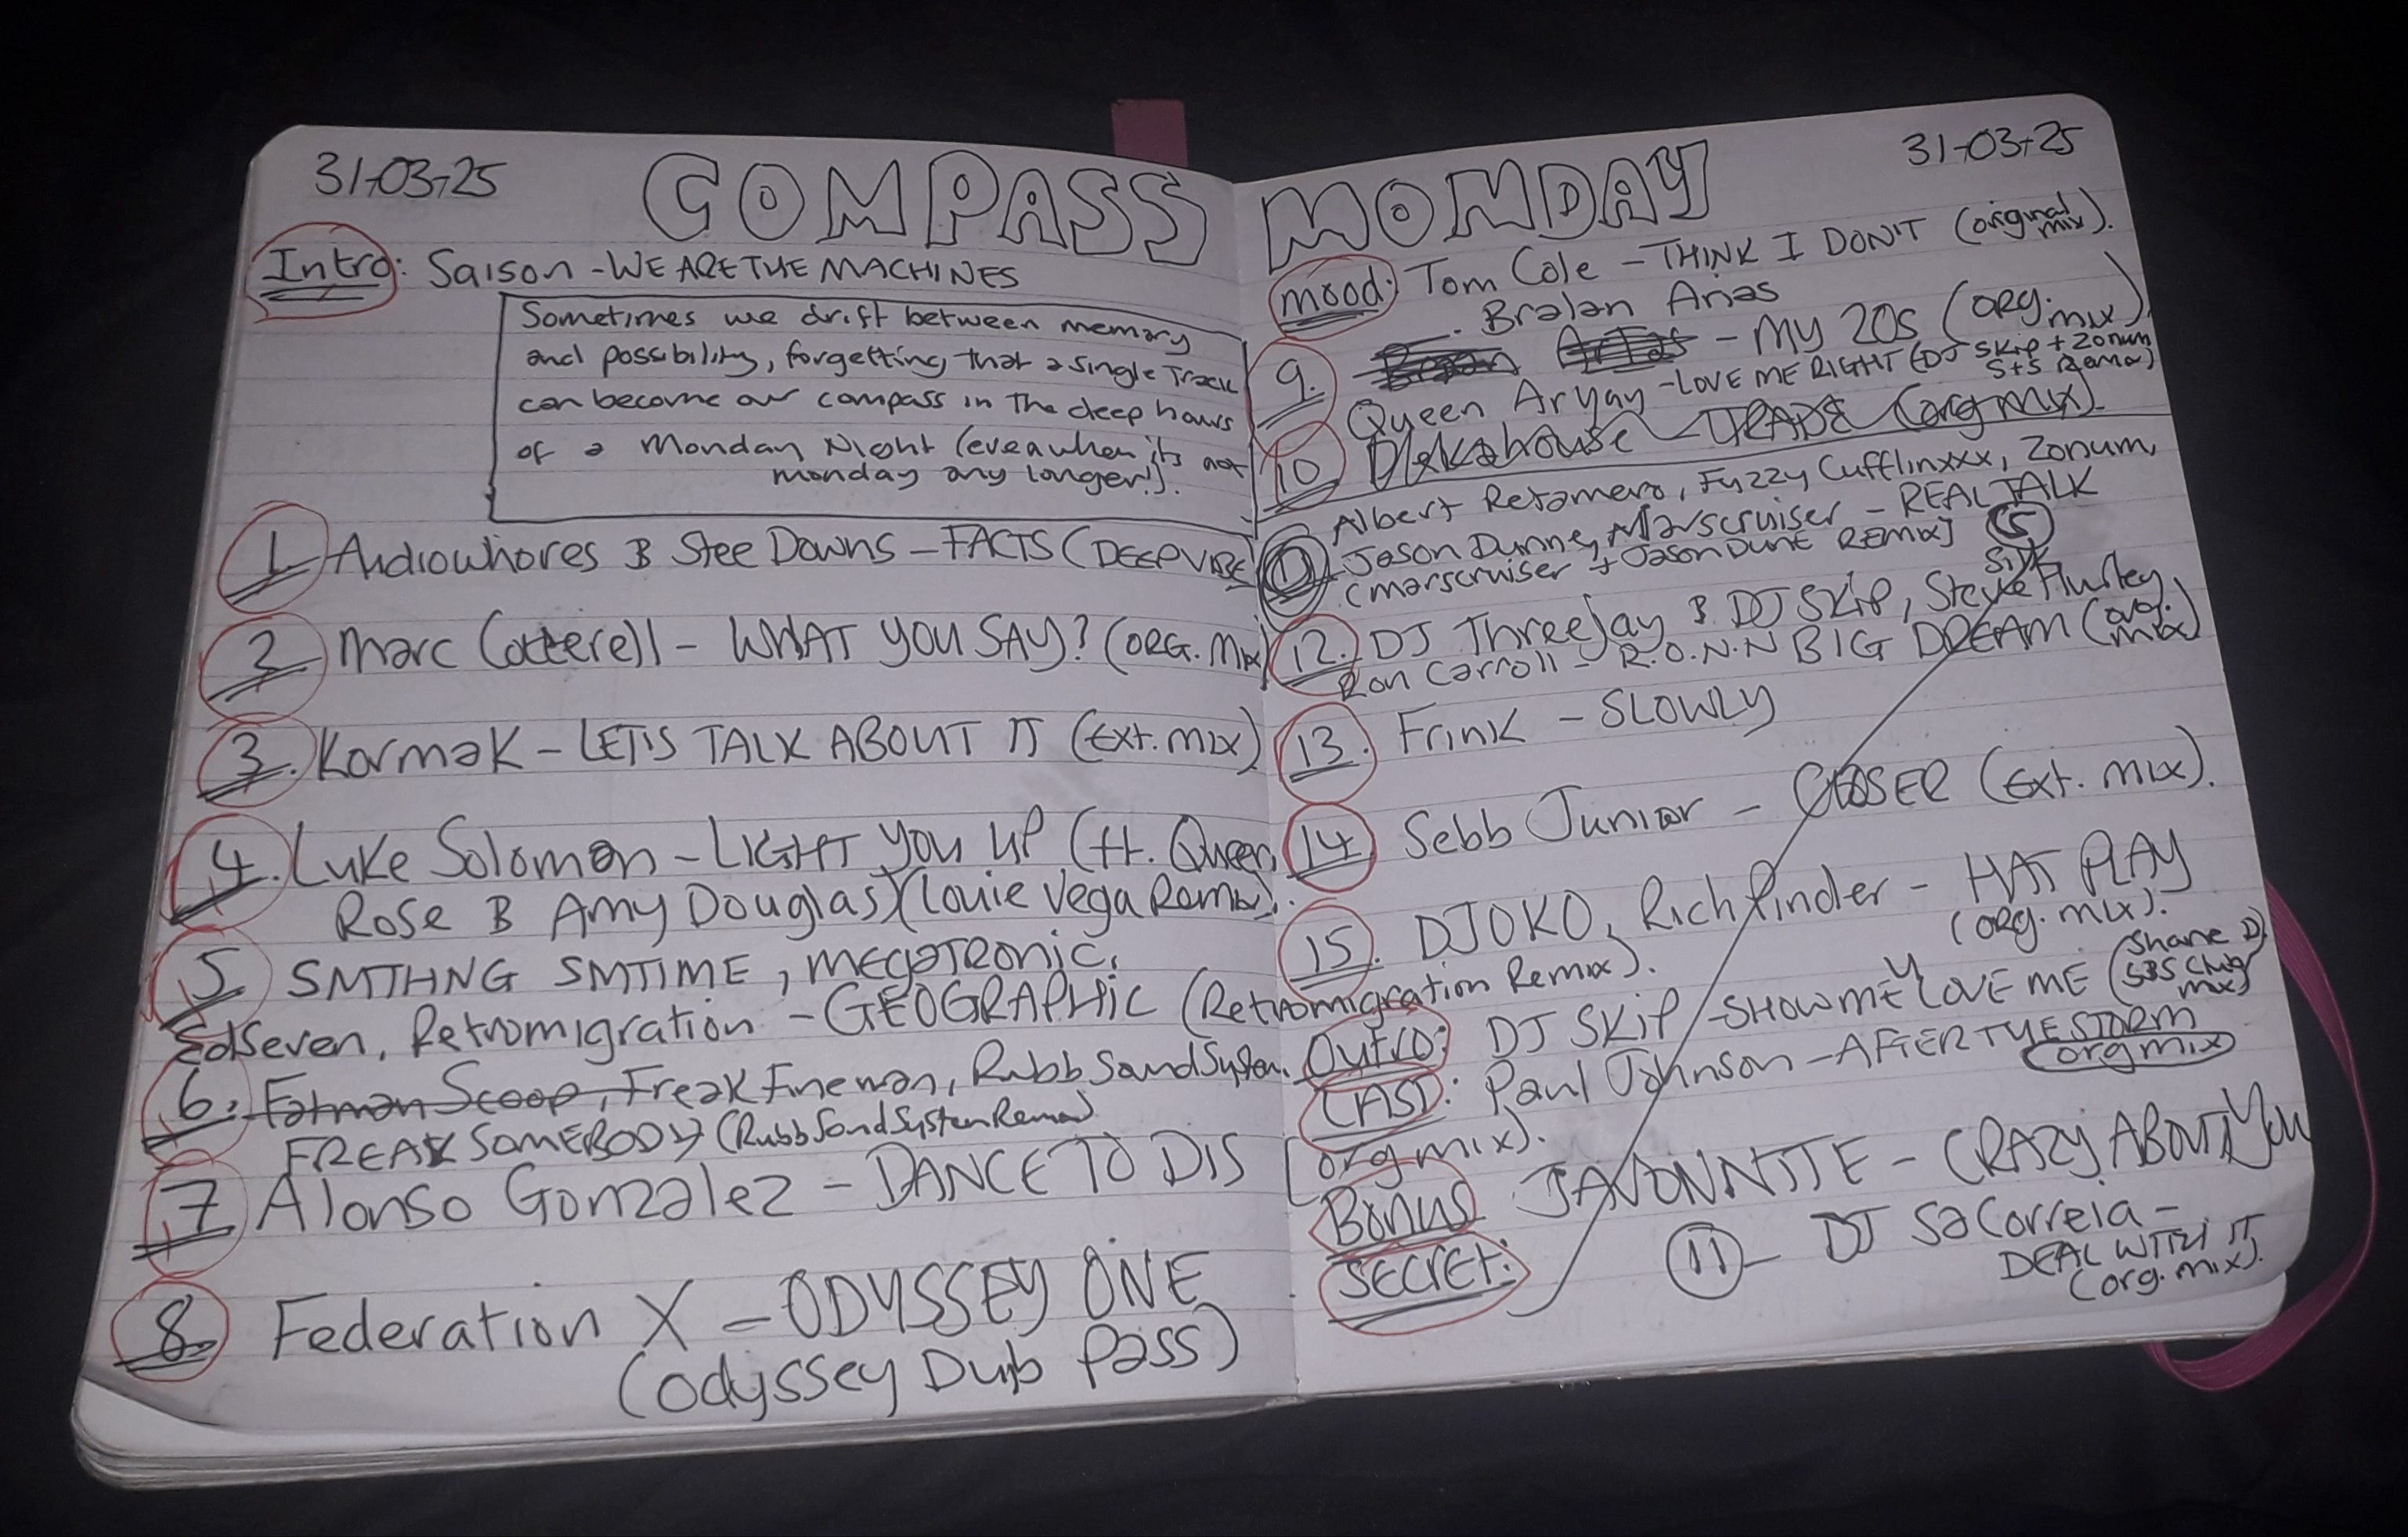 31-03-25 COMPASS
Intro: Saison - WE ARE THE MACHINES
Sometimes we drift between memory
and possibility, forgetting that a single Track
can become our compass in The deep hours
of a Monday Night (even when it's not
monday any longer!).
1. Audiowhores B Stee Downs - FACTS (DEEP VIBE
2. Marc Cotterell - WHAT YOU SAY? (ORG. Mix)
3. Kormak - LET'S TALK ABOUT IT (Ext. mix)
4. Luke Solomon - LIGHT YOU UP (ft. Queen
Rose B Amy Douglas) (Louie Vega Remix).
5. SMTHNG SMTIME, megatronic,
EdSeven, Retromigration - GEOGRAPHIC (Retromigration Remix).
6. Fatman Scoop, Freak Fineman, Rubb Sound System
FREAK SOMEBODY (Rubb Sound System Remix)
7. Alonso Gonzalez - DANCE TO DIS
8. Federation X - ODYSSEY ONE
(Odyssey Dub Pass)
MONDAY 31-03-25
mood: Tom Cole - THINK I DON'T (original mix).
Bralan Arias
9. - MY 20s (ORG. mix).
Queen Aryay - LOVE ME RIGHT (DJ Skip + Zonum
S+S Remix)
10 - TRADE (org mix).
Albert Retamero, Fuzzy Cufflinxxx, Zonum,
11 Jason Dunne, Marscruiser - REAL TALK
(marscruiser + Jason Dune REMIX] 5
12. DJ Threejay B DJ SKIP,
Ron Carroll - R.O.N.N BIG DREAM (org. mix)
13. Frink - SLOWLY
14. Sebb Junior - CLOSER (Ext. mix).
15. DJOKO, Rich Pinder - HAT PLAY
(org. mix).
Outro: DJ SKIP - SHOW ME Y LOVE ME (Shane D
SBS Chug mix)
LAST: Paul Johnson - AFTER THE STORM
(org mix)
(org mix).
Bonus JAVONNTTE - CRAZY ABOUT YOU
Secret: 11 - DJ Sa Correia -
DEAL WITH IT
(org. mix).